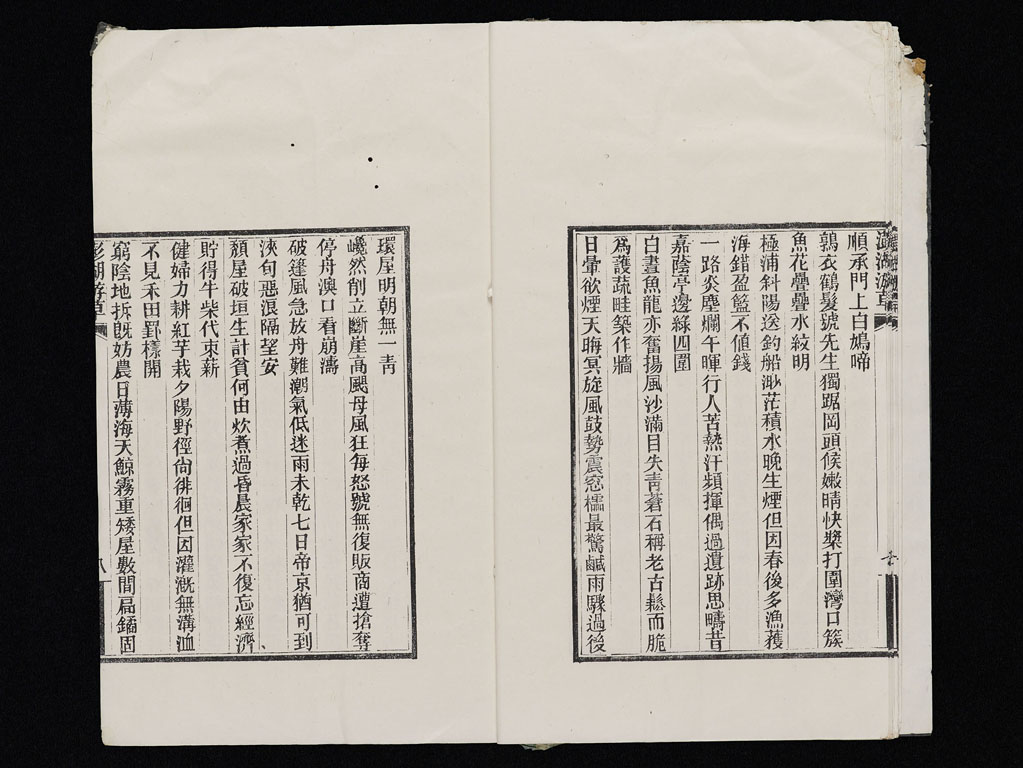 順承門上白鳩啼
鶉衣鶴髮號先生獨踞岡頭候嫩晴快槳打圍灣口簇
魚花疊疊水紋明
極浦斜陽送釣船渺茫積水晚生煙但因春後多漁獲
海錯盈籃不値錢
一路炎塵爛午暉行人苦熱汗頻揮偶過遺跡思疇昔
嘉蔭亭邊綠四圍
白晝魚龍亦奮揚風沙滿目失靑蒼石稱老古鬆而脆
爲護蔬畦築作牆
日暈欲煙天晦冥旋風鼓勢震窓櫺最驚鹹雨驟過後
環屋明朝無一靑
巉然削立斷崖高颶母風狂每怒號無復販商遭搶奪
停舟澳口看崩濤
破篷風急放舟難潮氣低迷雨未乾七日帝京猶可到
浹旬惡浪隔望安
頹屋破垣生計貧何由炊煮過昏晨家家不復忘經濟
貯得牛柴代束薪
健婦力耕紅芋栽夕陽野徑尙徘徊但因灌漑無溝洫
不見禾田罫樣開
窮陰地拆旣妨農日薄海天鯨霧重矮屋數間扃鐍固
澎湖游草
八